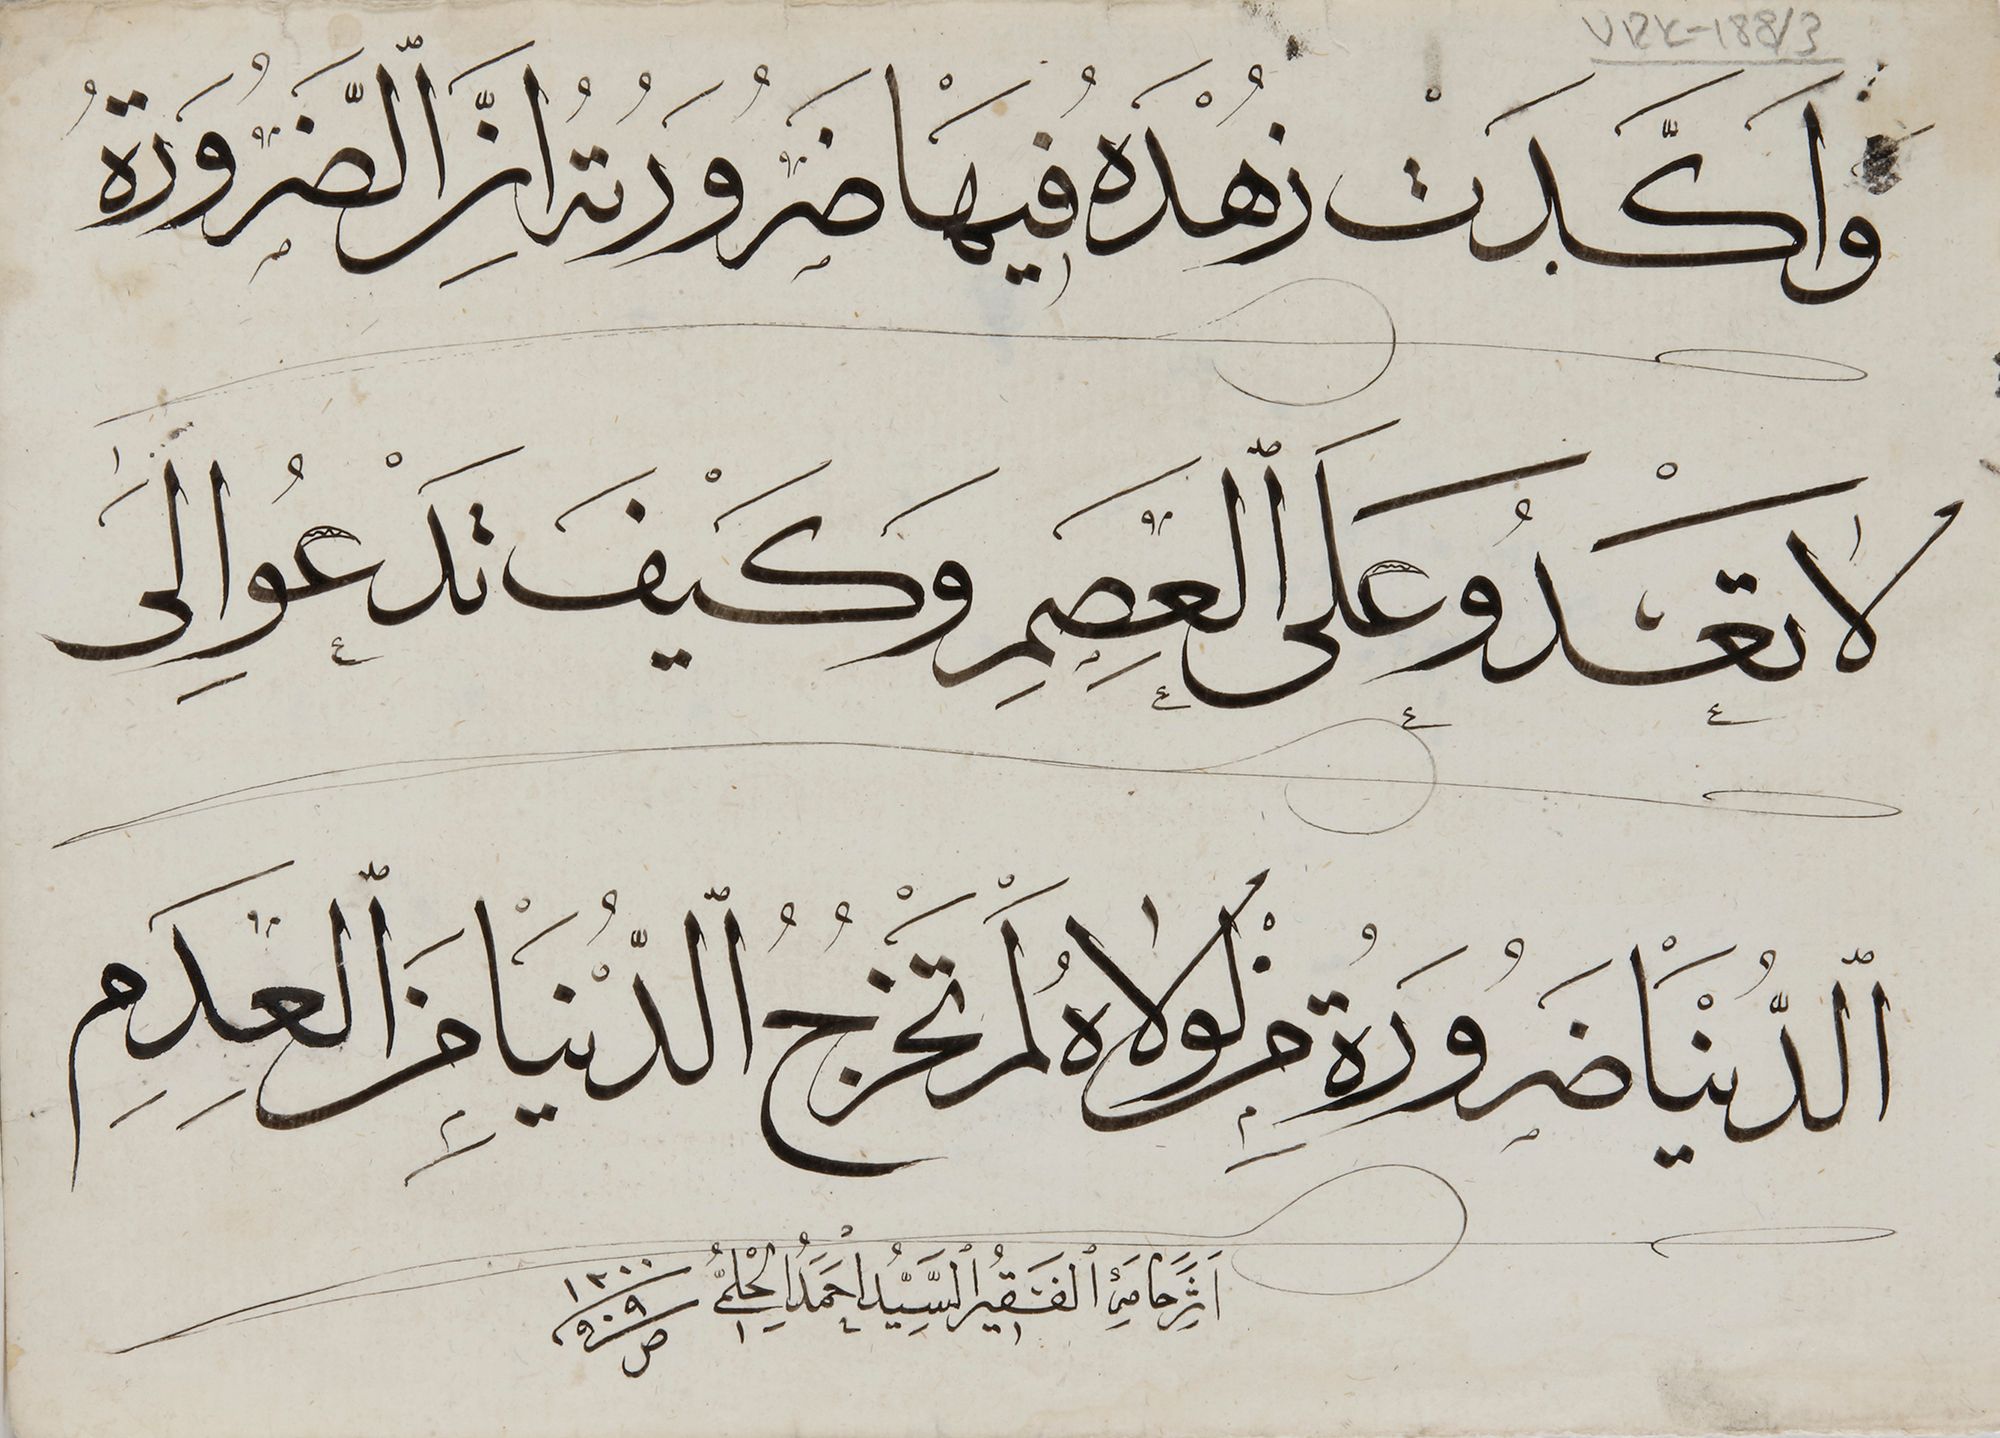 VRK-188/3
وَاَكَّدَتْ زُهْدَهُ فِيهَا ضَرُورَتُهُ اِنَّ الضَّرُورَةَ
لَا تَعْدُو عَلَى الْعِصَمِ وَكَيْفَ تَدْعُو اِلَى
الدُّنْيَا ضَرُورَةُ مَنْ لَوْلَاهُ لَمْ تَخْرُجِ الدُّنْيَا مِنَ الْعَدَمِ
اَثَرُ خَامَةِ الْفَقِيرِ السَّيِّد اَحْمَدُ الْحِلْمِي
١٣٠٠
ص